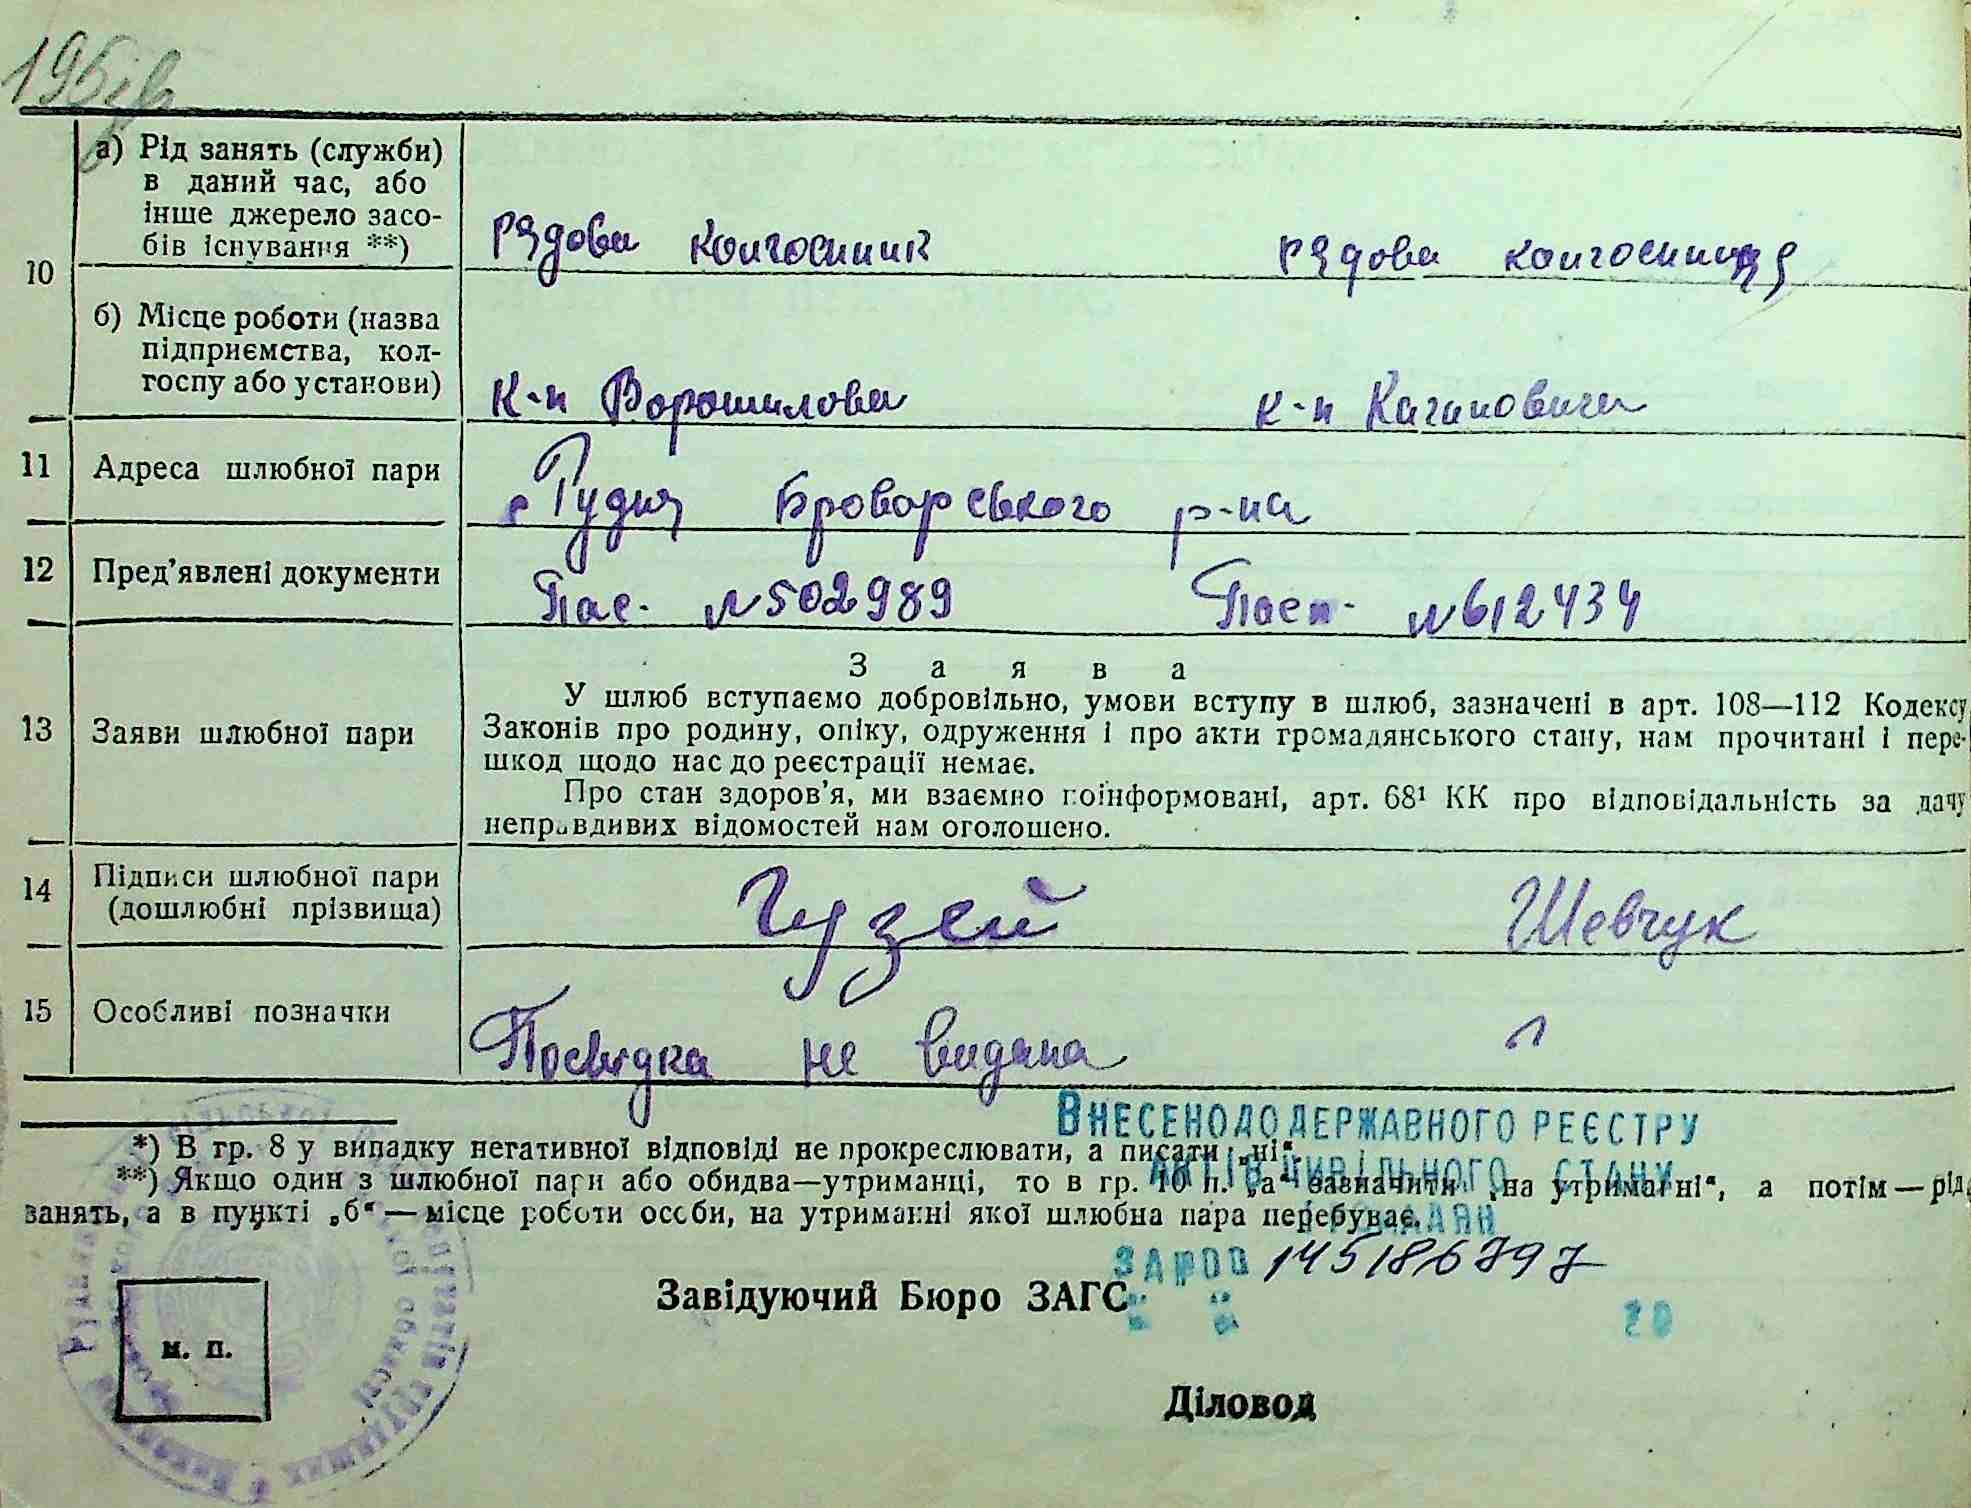 10
а) Рід занять (служби)
в даний час, або
інше джерело засо-
бів існування **)
рядови колгоспник рядова колгоспниця
б) Місце роботи (назва
підприємства, кол-
госпу або установи)
к-п Ворошилова к-п Кагановича
11 Адреса шлюбної пари
с Рудня Броварського р-на
12 Пред’явлені документи
Пас. №502989 Пасп. №612434
13 Заяви шлюбної пари
Заява
У шлюб вступаємо добровільно, умови вступу в шлюб, зазначені в арт. 108—112 Кодексу
Законів про родину, опіку, одруження і про акти громадянського стану, нам прочитані і пере-
шкод щодо нас до реєстрації немає.
Про стан здоров’я, ми взаємно поінформовані, арт. 68¹ КК про відповідальність за дачу
неправдивих відомостей нам оголошено.
14 Підписи шлюбної пари
(дошлюбні прізвища)
Гузей Шевчук
15 Особливі позначки
Посвідка не видана
ВНЕСЕНО ДО ДЕРЖАВНОГО РЕЄСТРУ
АКТІВ ЦИВІЛЬНОГО СТАНУ
ГРОМАДЯН
ЗА №
*) В гр. 8 у випадку негативної відповіді не прокреслювати, а писати „ні“.
**) Якщо один з шлюбної пари або обидва—утриманці, то в гр. 10 п. „а“ зазначити „на утриманні“, а потім — рід
занять, а в пункті „б“ — місце роботи особи, на утриманні якої шлюбна пара перебуває.
Завідуючий Бюро ЗАГС
20
м. п.
Діловод